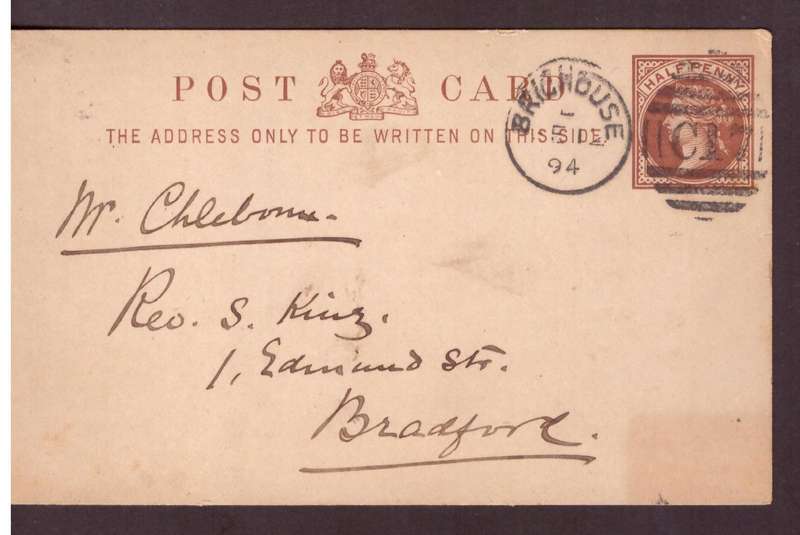 POST CARD
THE ADDRESS ONLY TO BE WRITTEN ON THIS SIDE
BRIGHOUSE
94
HALFPENNY
C17
Mr.
Rev. S. King.
1, Edmund Str.
Bradford.